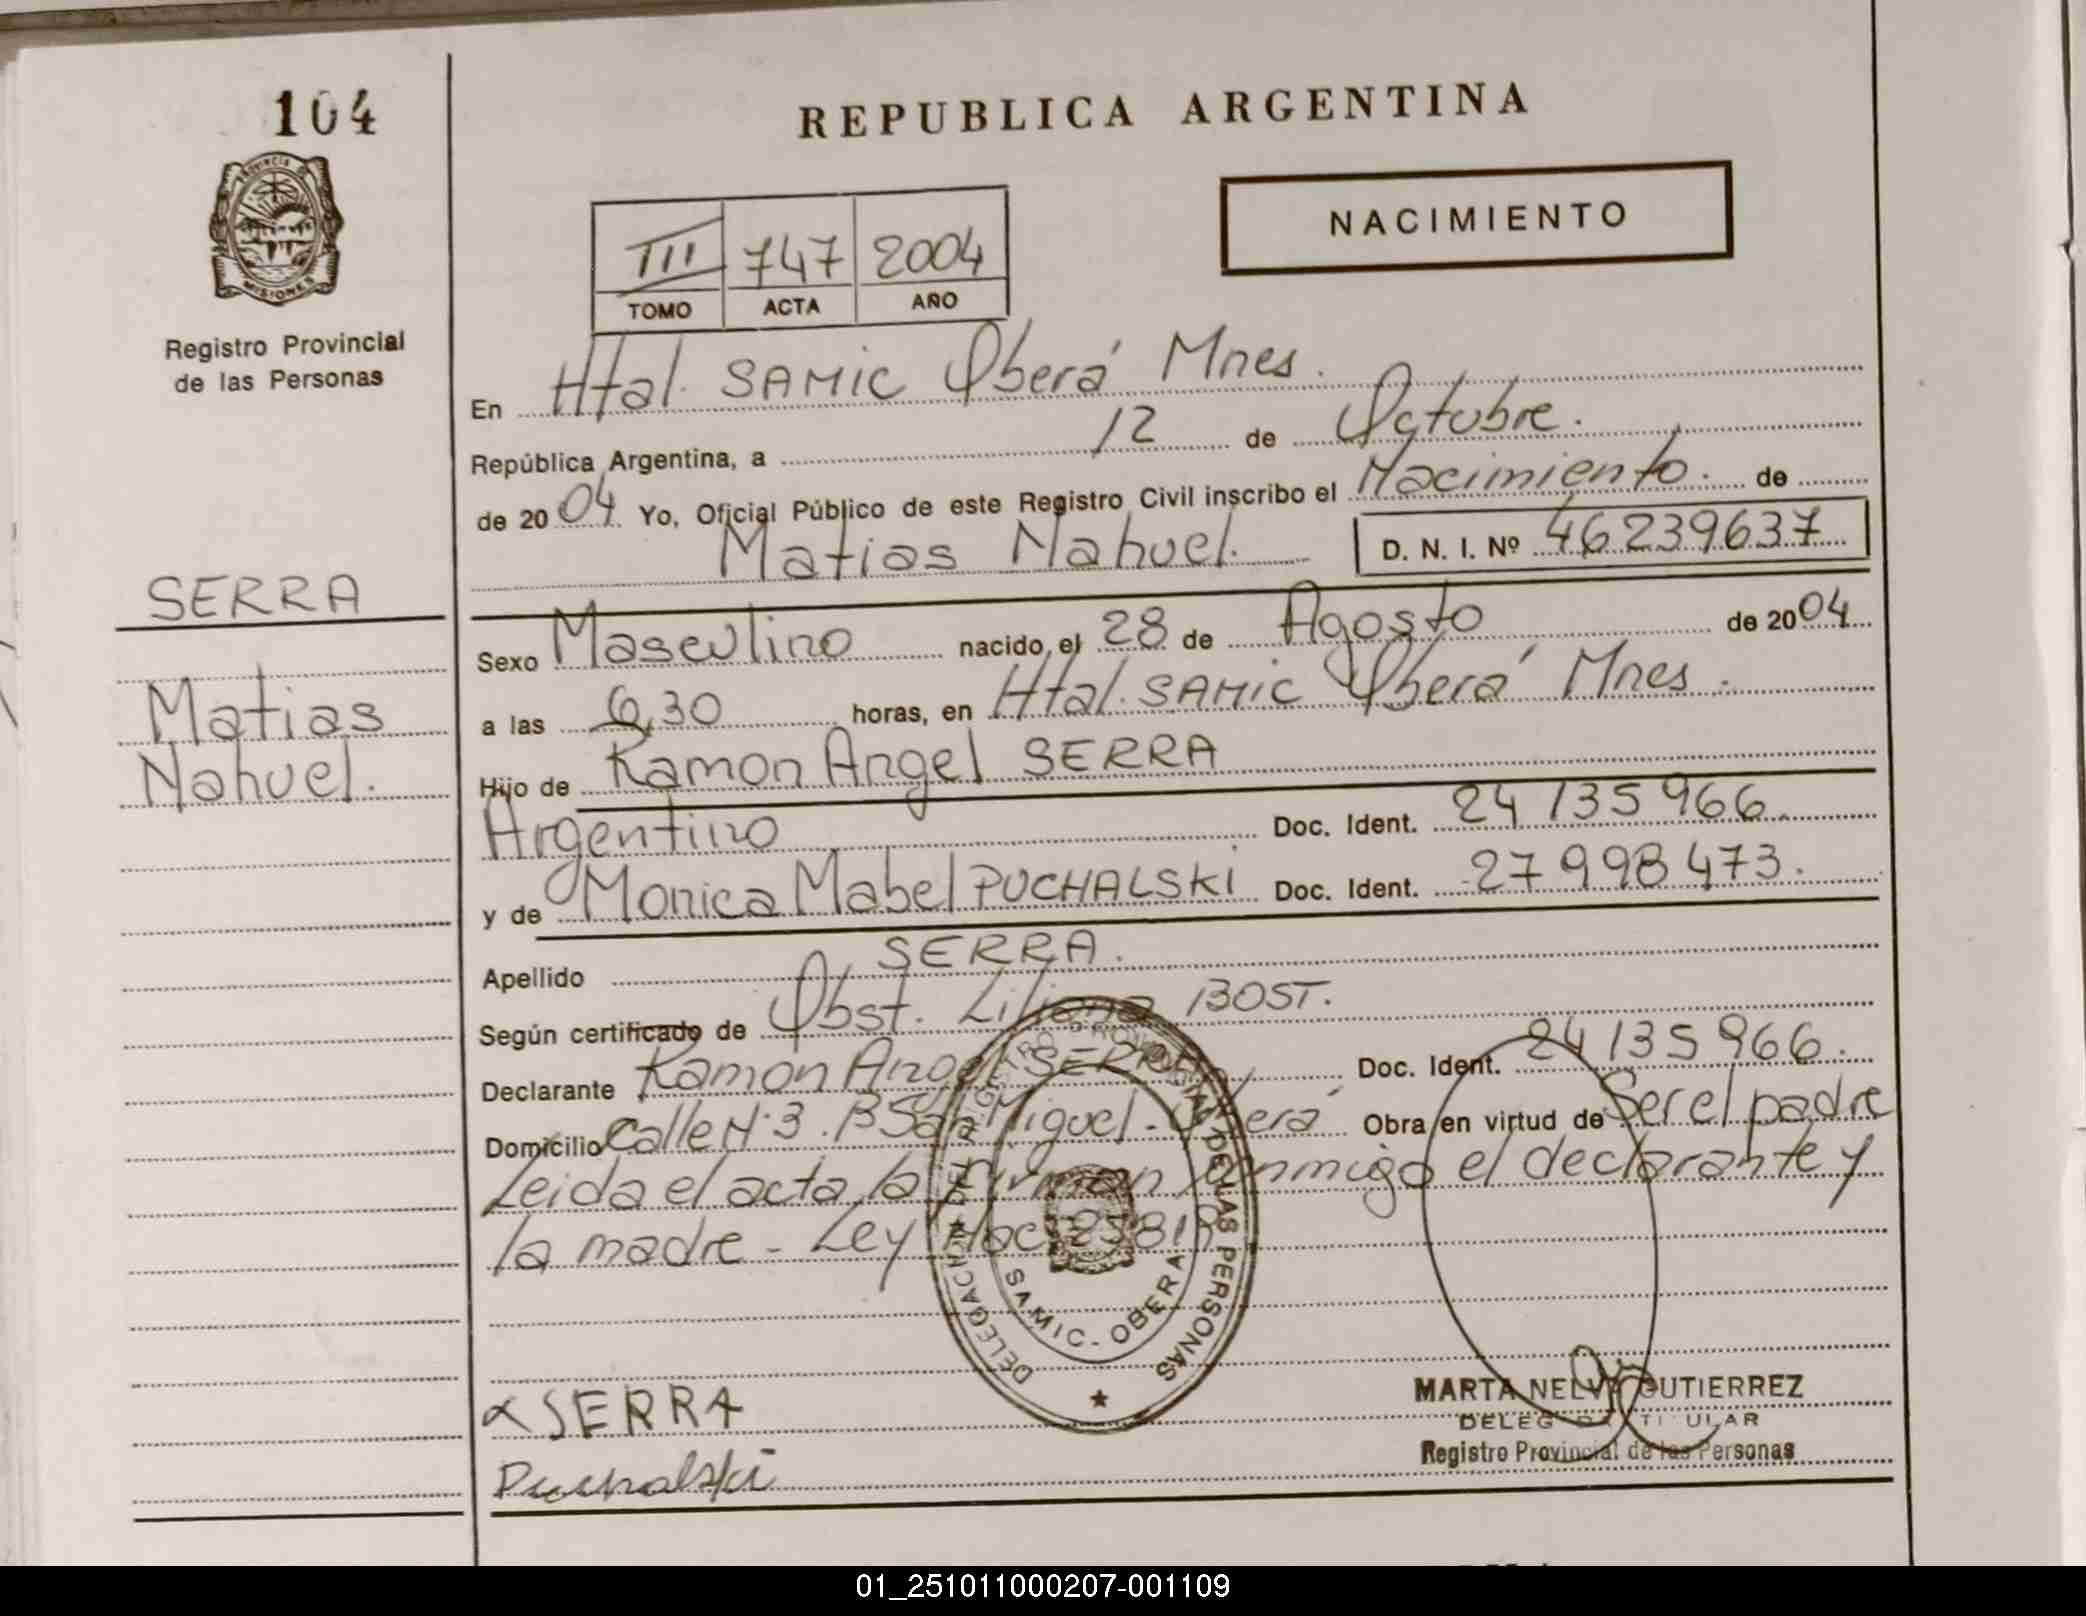 104
REPUBLICA ARGENTINA
PROVINCIA DE
MISIONES
Registro Provincial
de las Personas
NACIMIENTO
III 747 2004
TOMO ACTA AÑO
En Htal. SAMIC Oberá Mnes.
República Argentina, a 12 de Octubre.
de 2004 Yo, Oficial Público de este Registro Civil inscribo el Nacimiento. de
Matias Nahuel. D. N. I. Nº 46239637
SERRA
Matias
Nahuel.
Sexo Masculino nacido el 28 de Agosto de 2004
a las 6,30 horas, en Htal. SAMIC Oberá Mnes.
Hijo de Ramon Angel SERRA
Argentino Doc. Ident. 24 135 966.
y de Monica Mabel PUCHALSKI Doc. Ident. 27 998 473.
Apellido SERRA.
Según certificado de Obst. Liliana BOST.
Declarante Ramon Angel SERRA Doc. Ident. 24 135 966.
Domicilio Calle Nº 3. Bº San Miguel - Oberá Obra en virtud de Ser el padre
Leida el acta, la Firman conmigo el declarante y
la madre - Ley Nac. 25818
DELEGACION
REGISTRO PROVINCIAL DE LAS PERSONAS
SAMIC - OBERA
SERRA
Puchalski
MARTA NELVI GUTIERREZ
DELEGADA TITULAR
Registro Provincial de las Personas
01_251011000207-001109